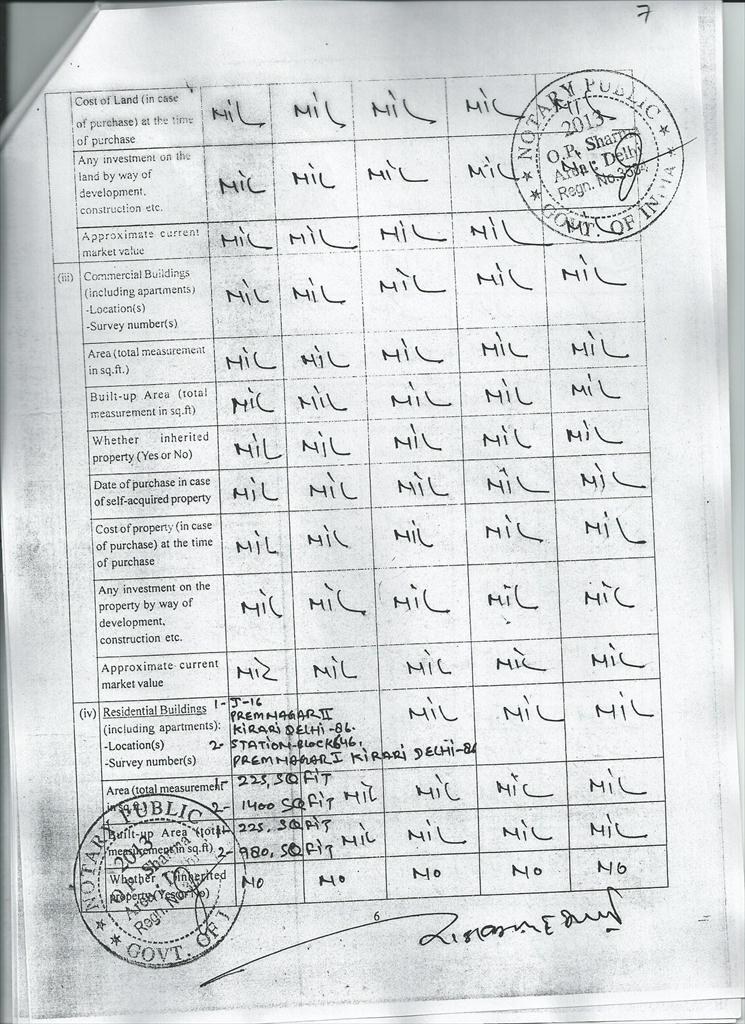 7
Cost of Land (in case of purchase) at the time of purchase NIL NIL NIL NIL NIL
Any investment on the land by way of development, construction etc. NIL NIL NIL NIL NIL
Approximate current market value NIL NIL NIL NIL NIL
NOTARY PUBLIC
2013
O.P. Sharma
Area: Delhi
GOVT. OF INDIA
(iii) Commercial Buildings (including apartments) NIL NIL NIL NIL NIL
-Location(s)
-Survey number(s)
Area (total measurement in sq.ft.) NIL NIL NIL NIL NIL
Built-up Area (total measurement in sq.ft) NIL NIL NIL NIL NIL
Whether inherited property (Yes or No) NIL NIL NIL NIL NIL
Date of purchase in case of self-acquired property NIL NIL NIL NIL NIL
Cost of property (in case of purchase) at the time of purchase NIL NIL NIL NIL NIL
Any investment on the property by way of development, construction etc. NIL NIL NIL NIL NIL
Approximate current market value NIL NIL NIL NIL NIL
(iv) Residential Buildings (including apartments):
-Location(s)
-Survey number(s)
1- J-16
PREM NAGAR II
KIRARI DELHI-86.
2- STATION-BLOCK646,
PREM NAGAR I KIRARI DELHI-86
NIL NIL NIL
Area (total measurement in sq.ft.)
1- 225, SQ FIT
2- 1400 SQ FIT NIL NIL NIL NIL
Built-up Area (total measurement in sq.ft)
1- 225, SQ FIT
2- 980, SQ FIT NIL NIL NIL NIL
Whether inherited property (Yes or No) NO NO NO NO NO
NOTARY PUBLIC
2013
O.P. Sharma
Area: Delhi
GOVT. OF I
6